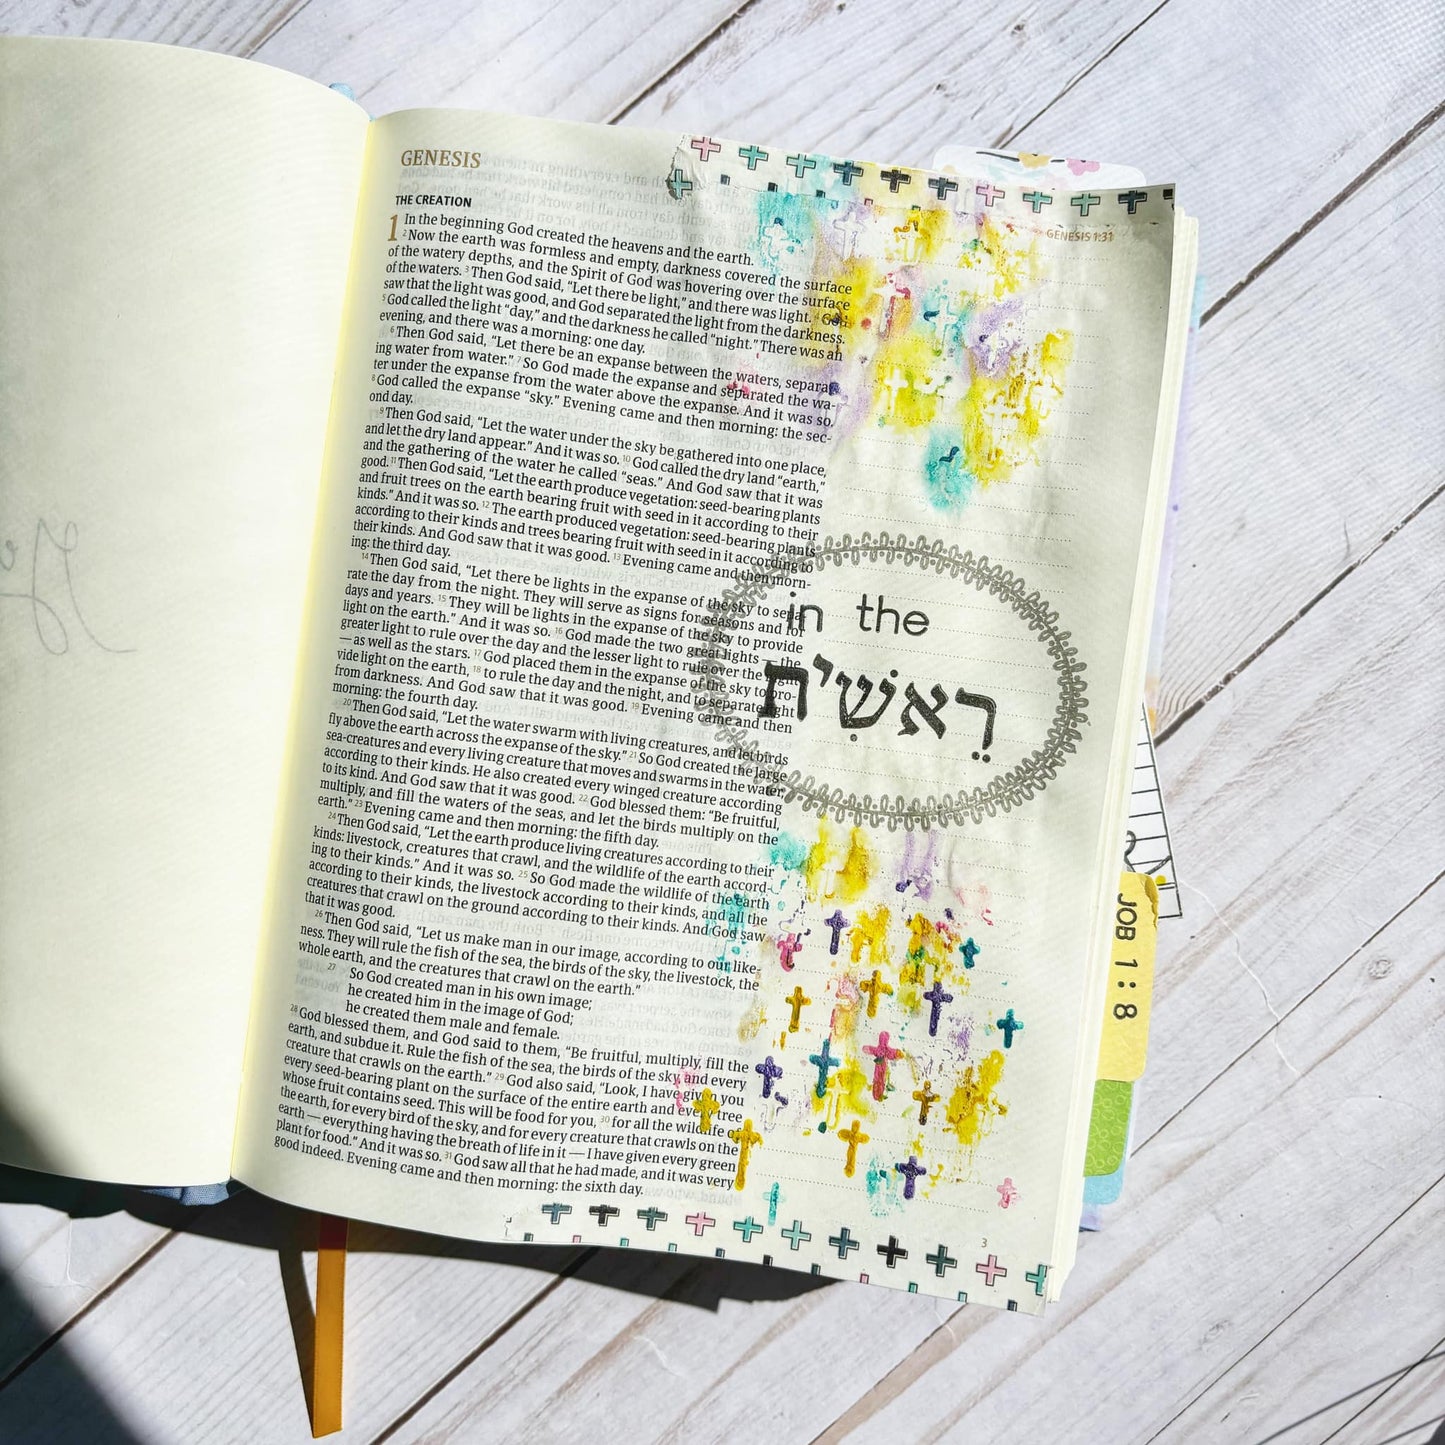 GENESIS
THE CREATION
GENESIS 1:31
1 In the beginning God created the heavens and the earth.
2 Now the earth was formless and empty, darkness covered the surface
of the watery depths, and the Spirit of God was hovering over the surface
of the waters. 3 Then God said, “Let there be light,” and there was light. 4 God
saw that the light was good, and God separated the light from the darkness.
5 God called the light “day,” and the darkness he called “night.” There was an
evening, and there was a morning: one day.
6 Then God said, “Let there be an expanse between the waters, separat-
ing water from water.” 7 So God made the expanse and separated the wa-
ter under the expanse from the water above the expanse. And it was so.
8 God called the expanse “sky.” Evening came and then morning: the sec-
ond day.
9 Then God said, “Let the water under the sky be gathered into one place,
and let the dry land appear.” And it was so. 10 God called the dry land “earth,”
and the gathering of the water he called “seas.” And God saw that it was
good. 11 Then God said, “Let the earth produce vegetation: seed-bearing plants
and fruit trees on the earth bearing fruit with seed in it according to their
kinds.” And it was so. 12 The earth produced vegetation: seed-bearing plants
according to their kinds and trees bearing fruit with seed in it according to
their kinds. And God saw that it was good. 13 Evening came and then morn-
ing: the third day.
14 Then God said, “Let there be lights in the expanse of the sky to sepa-
rate the day from the night. They will serve as signs for seasons and for
days and years. 15 They will be lights in the expanse of the sky to provide
light on the earth.” And it was so. 16 God made the two great lights — the
greater light to rule over the day and the lesser light to rule over the night
— as well as the stars. 17 God placed them in the expanse of the sky to pro-
vide light on the earth, 18 to rule the day and the night, and to separate light
from darkness. And God saw that it was good. 19 Evening came and then
morning: the fourth day.
20 Then God said, “Let the water swarm with living creatures, and let birds
fly above the earth across the expanse of the sky.” 21 So God created the large
sea-creatures and every living creature that moves and swarms in the water,
according to their kinds. He also created every winged creature according
to its kind. And God saw that it was good. 22 God blessed them: “Be fruitful,
multiply, and fill the waters of the seas, and let the birds multiply on the
earth.” 23 Evening came and then morning: the fifth day.
24 Then God said, “Let the earth produce living creatures according to their
kinds: livestock, creatures that crawl, and the wildlife of the earth accord-
ing to their kinds.” And it was so. 25 So God made the wildlife of the earth
according to their kinds, the livestock according to their kinds, and all the
creatures that crawl on the ground according to their kinds. And God saw
that it was good.
26 Then God said, “Let us make man in our image, according to our like-
ness. They will rule the fish of the sea, the birds of the sky, the livestock, the
whole earth, and the creatures that crawl on the earth.”
27 So God created man in his own image;
he created him in the image of God;
he created them male and female.
28 God blessed them, and God said to them, “Be fruitful, multiply, fill the
earth, and subdue it. Rule the fish of the sea, the birds of the sky, and every
creature that crawls on the earth.” 29 God also said, “Look, I have given you
every seed-bearing plant on the surface of the entire earth and every tree
whose fruit contains seed. This will be food for you, 30 for all the wildlife of
the earth, for every bird of the sky, and for every creature that crawls on the
earth — everything having the breath of life in it — I have given every green
plant for food.” And it was so. 31 God saw all that he had made, and it was very
good indeed. Evening came and then morning: the sixth day.
in the
רֵאשִׁית
JOB 1:8
3